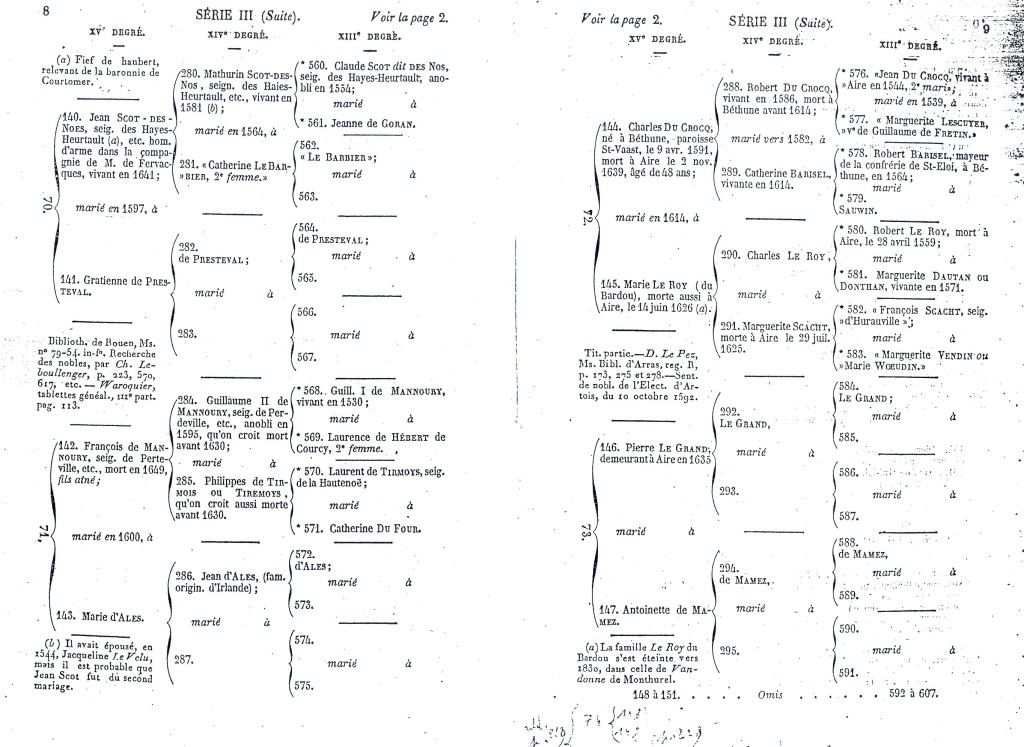 8
SÉRIE III (Suite).
Voir la page 2.
XVᵉ DEGRÉ.
XIVᵉ DEGRÉ.
XIIIᵉ DEGRÈ.
(a) Fief de haubert,
relevant de la baronnie de
Courtomer.
140. Jean SCOT-DES-
NOES, seig. des Hayes-
Heurtault (a), etc. hom.
d'arme dans la compa-
gnie de M. de Fervac-
ques, vivant en 1641;
70.
marié en 1597, à
141. Gratienne de PRES-
TEVAL.
Biblioth. de Rouen, Ms.
nº 79-54. in-fº. Recherche
des nobles, par Ch. Le-
boullenger, p. 223, 570,
617, etc. — Waroquier,
tablettes généal., IIIᵉ part.
pag. 113.
142. François de MAN-
NOURY, seig. de Perte-
ville, etc., mort en 1649,
fils aîné;
71.
marié en 1600, à
143. Marie d'ALES.
(b) Il avait épousé, en
1544, Jacqueline Le Velu,
mais il est probable que
Jean Scot fut du second
mariage.
280. Mathurin SCOT-DES-
NOS, seign. des Haies-
Heurtault, etc., vivant en
1581 (b);
marié en 1564, à
281. « Catherine LE BAR-
»BIER, 2ᵉ femme.»
282.
de PRESTEVAL;
marié à
283.
284. Guillaume II de
MANNOURY, seig. de Per-
deville, etc., anobli en
1595, qu'on croit mort
avant 1630;
marié à
285. Philippes de TIR-
MOIS OU TIREMOYS,
qu'on croit aussi morte
avant 1630.
286. Jean d'ALES, (fam.
origin. d'Irlande);
marié à
287.
* 560. Claude SCOT dit DES NOS,
seig. des Hayes-Heurtault, ano-
bli en 1554;
marié à
* 561. Jeanne de GORAN.
562.
« LE BARBIER»;
marié à
563.
564.
de PRESTEVAL;
marié à
565.
566.
marié à
567.
* 568. Guill. I de MANNOURY,
vivant en 1530;
marié à
* 569. Laurence de HÉBERT de
Courcy, 2ᵉ femme.
* 570. Laurent de TIRMOYS, seig.
de la Hautenoë;
marié à
* 571. Catherine DU FOUR.
572.
d'ALES;
marié à
573.
574.
marié à
575.
Voir la page 2.
SÉRIE III (Suite).
9
XVᵉ DEGRÉ.
XIVᵉ DEGRÉ.
XIIIᵉ DEGRÉ.
144. Charles DU CROCQ,
né à Béthune, paroisse
St-Vaast, le 9 avr. 1591,
mort à Aire le 2 nov.
1639, âgé de 48 ans;
72.
marié en 1614, à
145. Marie LE ROY (du
Bardou), morte aussi à
Aire, le 14 juin 1626 (a).
Tit. partie.—D. Le Pez,
Ms. Bibl. d'Arras, reg. R,
p. 173, 275 et 278.—Sent.
de nobl. de l'Elect. d'Ar-
tois, du 10 octobre 1592.
146. Pierre LE GRAND,
demeurant à Aire en 1635
73.
marié à
147. Antoinette de MA-
MEZ.
(a) La famille Le Roy du
Bardou s'est éteinte vers
1830, dans celle de Van-
donne de Monthurel.
288. Robert DU CROCQ,
vivant en 1586, mort à
Béthune avant 1614;
marié vers 1582, à
289. Catherine BARISEL,
vivante en 1614.
290. Charles LE ROY,
marié à
291. Marguerite SCACHT,
morte à Aire le 29 juil.
1625.
292.
LE GRAND,
marié à
293.
294.
de MAMEZ,
marié à
295.
* 576. «Jean DU CROCQ, vivant à
»Aire en 1544, 2ᵉ mari»;
marié en 1539, à
* 577. « Marguerite LESCUYER,
»vᵉ de Guillaume de FRETIN.»
* 578. Robert BARISEL, mayeur
de la confrérie de St-Eloi, à Bé-
thune, en 1564;
marié à
* 579.
SAUWIN.
* 580. Robert LE ROY, mort à
Aire, le 28 avril 1559;
marié à
* 581. Marguerite DAUTAN OU
DONTHAN, vivante en 1571.
* 582. « François SCACHT, seig.
»d'Hurauville »;
marié à
* 583. « Marguerite VENDIN OU
»Marie WŒUDIN.»
584.
LE GRAND;
marié à
585.
586.
marié à
587.
588.
de MAMEZ,
marié à
589.
590.
marié à
591.
148 à 151. . . . . . Omis . . . . . . 592 à 607.
74